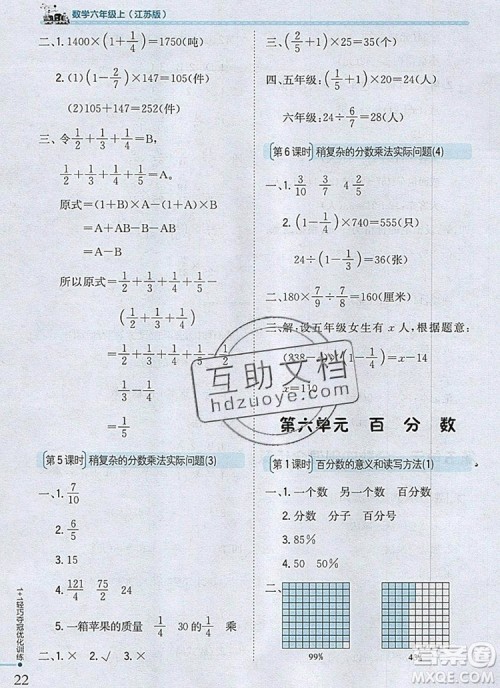 数学六年级上(江苏版)
二、1. 1400×(1+1/4)=1750(吨)
2. (1)(1-2/7)×147=105(件)
(2)105+147=252(件)
三、令1/2+1/3+1/4=B,
1/2+1/3+1/4+1/5=A。
原式=(1+B)×A-(1+A)×B
=A+AB-B-AB
=A-B
所以原式=1/2+1/3+1/4+1/5
-(1/2+1/3+1/4)
=1/2+1/3+1/4+1/5-1/2
-1/3-1/4
=1/5
第5课时 稍复杂的分数乘法实际问题(3)
一、1. 7/10
2. 6/5
3. 15
4. 121/4 75 24/5
5. 一箱苹果的质量 1/4 30的1/4 乘
四、五年级:(1/5+1)×20=24(个)
六年级:24÷6/5=20(个)
第6课时 稍复杂的分数乘法实际问题(4)
一、1. 3/10 7/10 4 1/2
2. (1-1/4)×740=555(只)
24÷(1-1/3)=36(张)
二、180×7/9÷7/8=160(厘米)
三、解:设五年级女生有x人,根据题意:
(1-1/4)=x-14
x=110
第六单元 百分数
第1课时 百分数的意义和读写方法(1)
一、1. 一个数 另一个数 几分之几
2. 分数 分子 百分号
3. 85%
4. 50 50%
二、
99%
1+1轻巧夺冠优化训练
22
互助文档
hdzuoye.com
答案圈
MXQE.COM